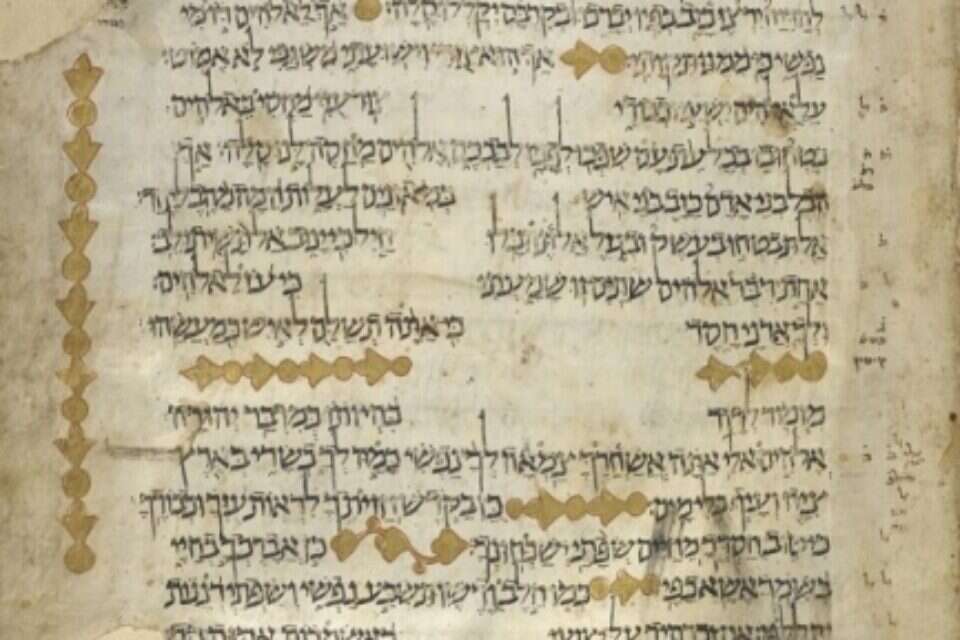 להדיח ירצו כזב בפיו יברכו ובקרבם יקללו סלה אך לאלהים דומי
נפשי כי ממנו תקותי אך הוא צורי וישועתי משגבי לא אמוט
על אלהים ישעי וכבודי צור עזי מחסי באלהים
בטחו בו בכל עת עם שפכו לפניו לבבכם אלהים מחסה לנו סלה אך
הבל בני אדם כזב בני איש במאזנים לעלות המה מהבל יחד
אל תבטחו בעשק ובגזל אל תהבלו חיל כי ינוב אל תשיתו לב
אחת דבר אלהים שתים זו שמעתי כי עז לאלהים
ולך אדני חסד כי אתה תשלם לאיש כמעשהו
מזמור לדוד בהיותו במדבר יהודה
אלהים אלי אתה אשחרך צמאה לך נפשי כמה לך בשרי בארץ
ציה ועיף בלי מים כן בקדש חזיתך לראות עזך וכבודך
כי טוב חסדך מחיים שפתי ישבחונך כן אברכך בחיי
בשמך אשא כפי כמו חלב ודשן תשבע נפשי ושפתי רננות